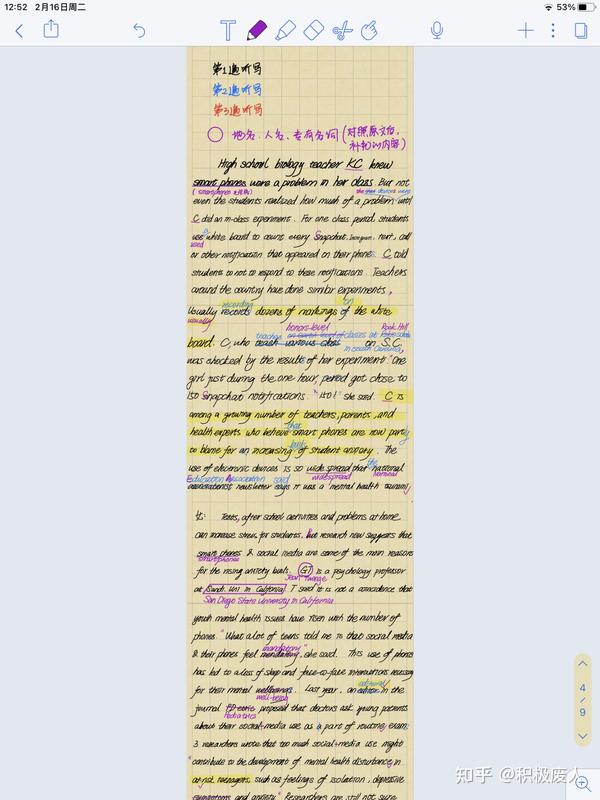 12:52 2月16日周二
53%
第1遍听写
第2遍听写
第3遍听写
地名、人名、专有名词（对照原文后，
补和认内容）
High school biology teacher KC knew
smart phones were a problem in her class. But not
(smartphones the devices were
even the students realized how much of a problem until
C did an in-class experiment. For one class period, students
use white board to count every Snapchat. Instagram, text, call
used
or other notification that appeared on their phone. C told
students to not to respond to these notifications. Teachers
around the country have done similar experiments,
recording on
Usually records dozens of markings of the white
usually honors-level Rock Hill
teaches classes at
board. C, who teach various class on S.C.
in south Carolina,
was shocked by the results of her experiment. "One
girl just during the one hour, period got close to
150 Snapchat notifications. "150!" she said. C is
among a growing number of teachers, parents, and
health experts who believe smart phones are now part
that partly
to blame for an increasing of student anxiety. The
use of electronic devices is so wide spread that national
widespread the National
Education Association said
newsletter says it was a "mental health tsunami,
Tests, after school activities and problems at home
can increase stress for students. But research now suggests that
smart phones & social media are some of the main reasons
smartphones
for the rising anxiety levels. GT is a psychology professor
Jean Twenge
at Sandi. Uni in California. T said it is not a coincidence that
San Diego State University in California
youth mental health issues have risen with the number of
phones. "What a lot of teens told me is that social media
& their phones feel mandatory, she said. This use of phones
mandatory"
has led to a loss of sleep and face-to-face interactions necessary
for their mental wellbeings. Last year, an editor in the
well-being editorial
journal proposed that doctors ask young patients
Pediatrics
about their social-media use as a part of routine exams.
3 researchers wrote that too much social-media use might
"contribute to the development of mental health disturbance in
at-risk teenagers, such as feelings of isolation, depressive
symptoms and anxiety." Researchers are still not sure
4
9
知乎 @积极废人